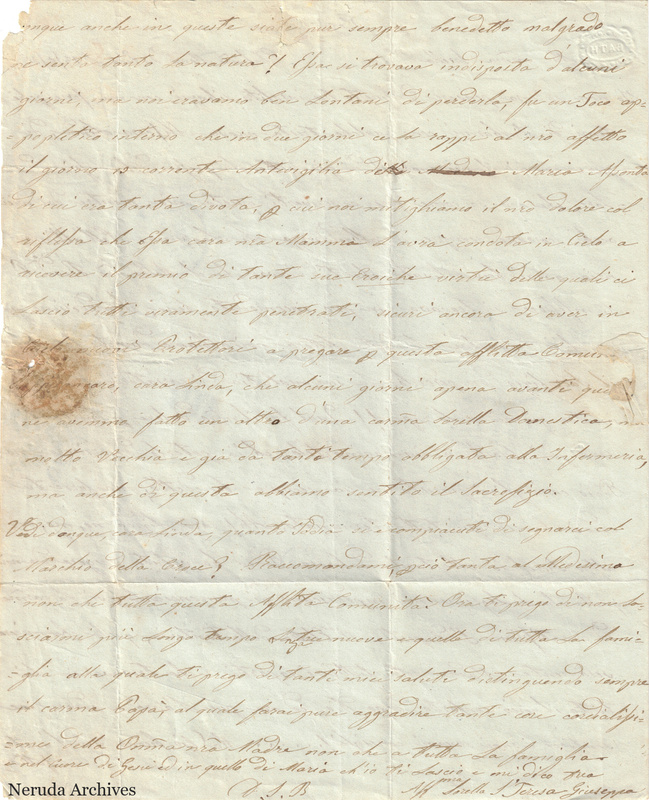 anche in queste siate pur sempre benedetto malgrado
ne senta tanto la natura? Essa si trovava indisposta d'alcuni
giorni, ma noi eravamo ben lontani di perderla, fu un Toco ap-
-popletico interno che in due giorni ce la rappì al nrõ affetto
il giorno 13 corrente Antivigilia di Maria Assonta
di cui era tanta divota, p cui noi mitighiamo il nrõ dolore col
riflesso che Essa cara nrã Mamma l'avrà condota in Cielo a
ricevere il premio di tante sue Eroiche virtù delle quali ci
lasciò tutti veramente penetrati, sicuri ancora di aver in
nuovi Protettori a pregare p questa afflitta Comun
cara Linda, che alcuni giorni apena avanti
ne avemmo fatto un altro d'una carmã Sorella Domestica,
molto Vecchia e già da tanto tempo obbligata alla Infermeria,
ma anche di questa abbiamo sentito il Sacrefizio.
Vedi donque, cara Linda, quanto Iddio si è compiaciuto di segnarci col
Marchio della Croce? Raccomandami pciò tanta al Medesimo
non che tutta questa Afflita Comunità. Ora ti prego di non la-
sciarmi più longo tempo senza tue nuove e quelle di tutta la fami-
-glia alla quale ti prego di tanti miei saluti distinguendo sempre
il carmõ Papà, al quale farai pure aggradire tante cose cordialissi-
-me della Onmã nrã Madre non che a tutta la famiglia
nel cuore di Gesù ed in quello di Maria ch'io ti lascio e mi dico tua
Aff.ma Sorella S. Teresa Giuseppa
V. S. B
Neruda Archives